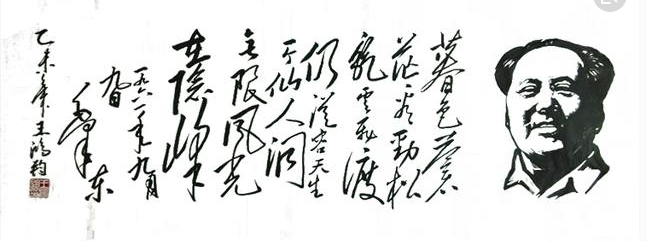 暮色蒼
茫看劲松
亂雲飛渡
仍從容天生
一个仙人洞
无限风光
在險峰
一九六一年九月
九日
毛泽东
乙未年王鸿钧